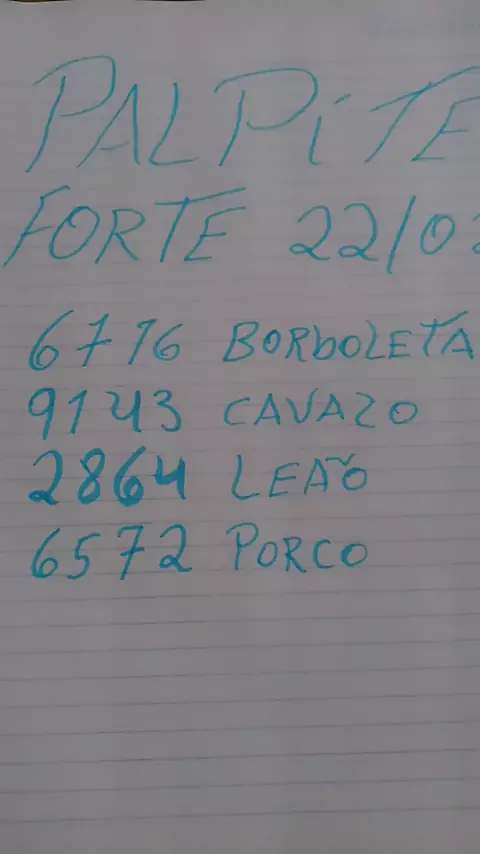 PALPITE
FORTE 22/02
6716 BORBOLETA
9143 CAVAZO
2864 LEÃO
6572 PORCO